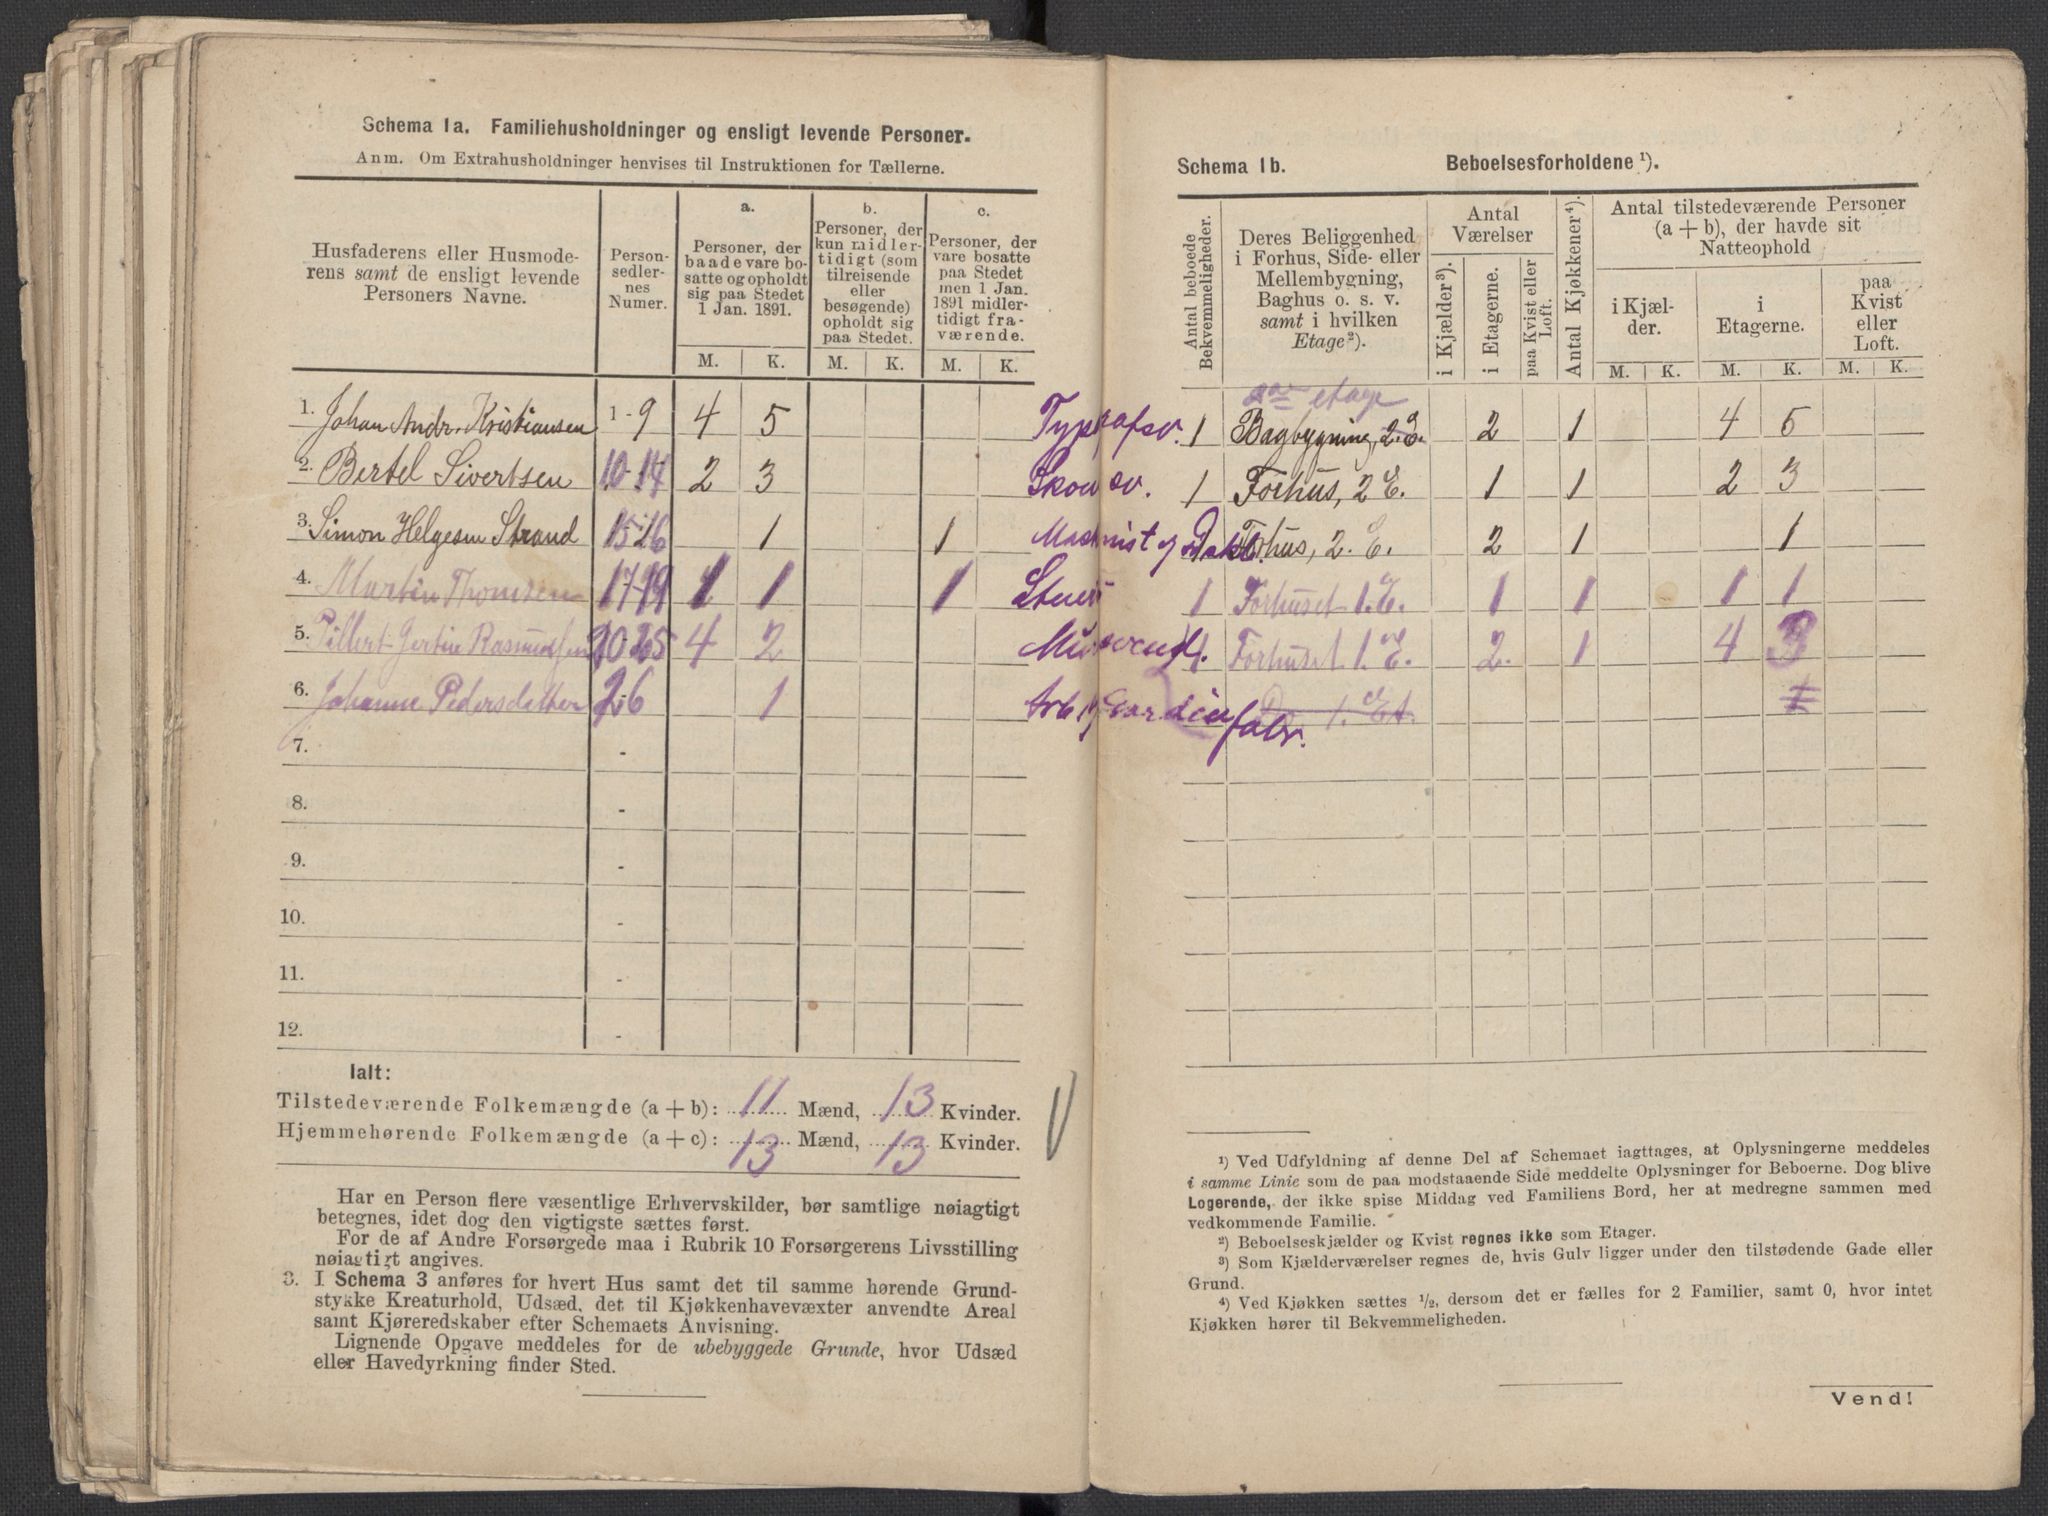 Schema 1a. Familiehusholdninger og ensligt levende Personer.
Anm. Om Extrahusholdninger henvises til Instruktionen for Tællerne.
Husfaderens eller Husmode-
rens samt de ensligt levende
Personers Navne.
Person-
sedler-
nes
Numer.
a.
Personer, der
baade vare bo-
satte og opholdt
sig paa Stedet
1 Jan. 1891.
b.
Personer, der
kun midler-
tidigt (som
tilreisende
eller
besøgende)
opholdt sig
paa Stedet.
c.
Personer, der
vare bosatte
paa Stedet
men 1 Jan.
1891 midler-
tidigt fra-
værende.
M. K. M. K. M. K.
1. Johan Andr. Kristiansen 1-9 4 5
2. Bertel Sivertsen 10-14 2 3
3. Simon Helgesen Strand 15-16 1 1
4. Martin Thomsen 17-19 1 1 1
5. Pillert Gertine Rasmussen 20-25 4 2
6. Johanne Pedersdatter 26 1
7. -
8. -
9. -
10. -
11. -
12. -
Ialt:
Tilstedeværende Folkemængde (a + b): 11 Mænd, 13 Kvinder.
Hjemmehørende Folkemængde (a + c): 13 Mænd, 13 Kvinder.
Har en Person flere væsentlige Erhvervskilder, bør samtlige nøiagtigt
betegnes, idet dog den vigtigste sættes først.
For de af Andre Forsørgede maa i Rubrik 10 Forsørgerens Livsstilling
nøiagtigt angives.
3. I Schema 3 anføres for hvert Hus samt det til samme hørende Grund-
stykke Kreaturhold, Udsæd, det til Kjøkkenhavevæxter anvendte Areal
samt Kjøreredskaber efter Schemaets Anvisning.
Lignende Opgave meddeles for de ubebyggede Grunde, hvor Udsæd
eller Havedyrkning finder Sted.
Schema 1b. Beboelsesforholdene ¹).
Antal beboede
Bekvemmeligheder.
Deres Beliggenhed
i Forhus, Side- eller
Mellembygning,
Baghus o. s. v.
samt i hvilken
Etage ²).
Antal
Værelser
i Kjælder ³).
i Etagerne.
paa Kvist eller
Loft.
Antal Kjøkkener ⁴).
Antal tilstedeværende Personer
(a + b), der havde sit
Natteophold
i Kjæl-
der.
i
Etagerne.
paa
Kvist
eller
Loft.
M. K. M. K. M. K.
2den etage
1 Bagbygning, 2. E. 2 1 4 5
Skom sv. 1 Forhus, 2 E. 1 1 2 3
Forhus, 2. E. 2 1 1
1 Forhuset 1. E. 1 1 1 1
1 Forhuset 1. E. 2. 1 4 3
Do 1. Et. 1
fabr.
¹) Ved Udfyldning af denne Del af Schemaet iagttages, at Oplysningerne meddeles
i samme Linie som de paa modstaaende Side meddelte Oplysninger for Beboerne. Dog blive
Logerende, der ikke spise Middag ved Familiens Bord, her at medregne sammen med
vedkommende Familie.
²) Beboelseskjælder og Kvist regnes ikke som Etager.
³) Som Kjælderværelser regnes de, hvis Gulv ligger under den tilstødende Gade eller
Grund.
⁴) Ved Kjøkken sættes ½, dersom det er fælles for 2 Familier, samt 0, hvor intet
Kjøkken hører til Bekvemmeligheden.
Vend!